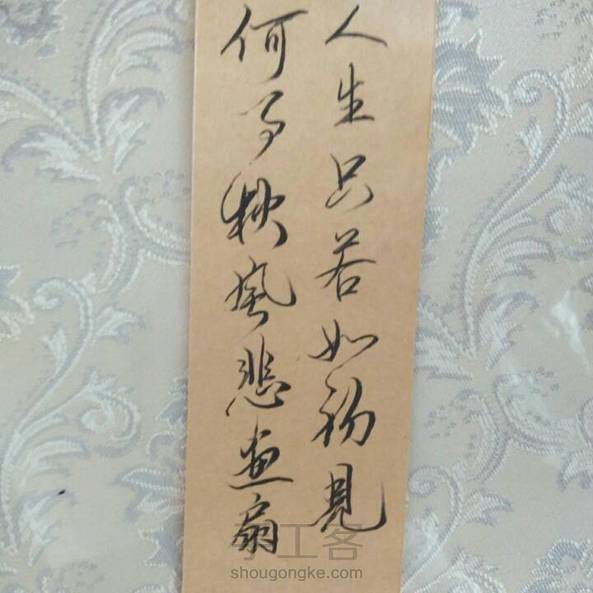 人生只若如初見
何事秋風悲畫扇
手工客
shougongke.com